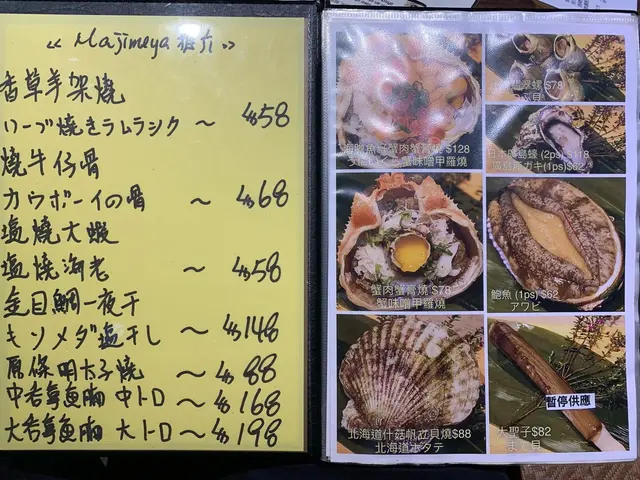 《 Majimeya 推介 》
香草羊架燒
ハーブ焼きラムラシク ～ $58
燒牛仔骨
カウボーイの骨 ～ $68
塩燒大蝦
塩焼海老 ～ $58
金目鯛一夜干
キソメダ塩干し ～ $148
原條明太子燒 ～ $88
中吞拿魚腩 中トロ ～ $168
大吞拿魚腩 大トロ ～ $198
蟹肉蟹膏燒 $128
うにいくら蟹味噌甲羅燒
翠螺 $78
つぶ貝
日本廣島蠔 (2ps) $118
廣島産ガキ(1ps)$62
蟹肉蟹膏燒 $78
蟹味噌甲羅燒
鮑魚 (1ps) $62
アワビ
北海道什菇帆立貝燒$88
北海道ホタテ
暫停供應
大聖子 $82
まて貝